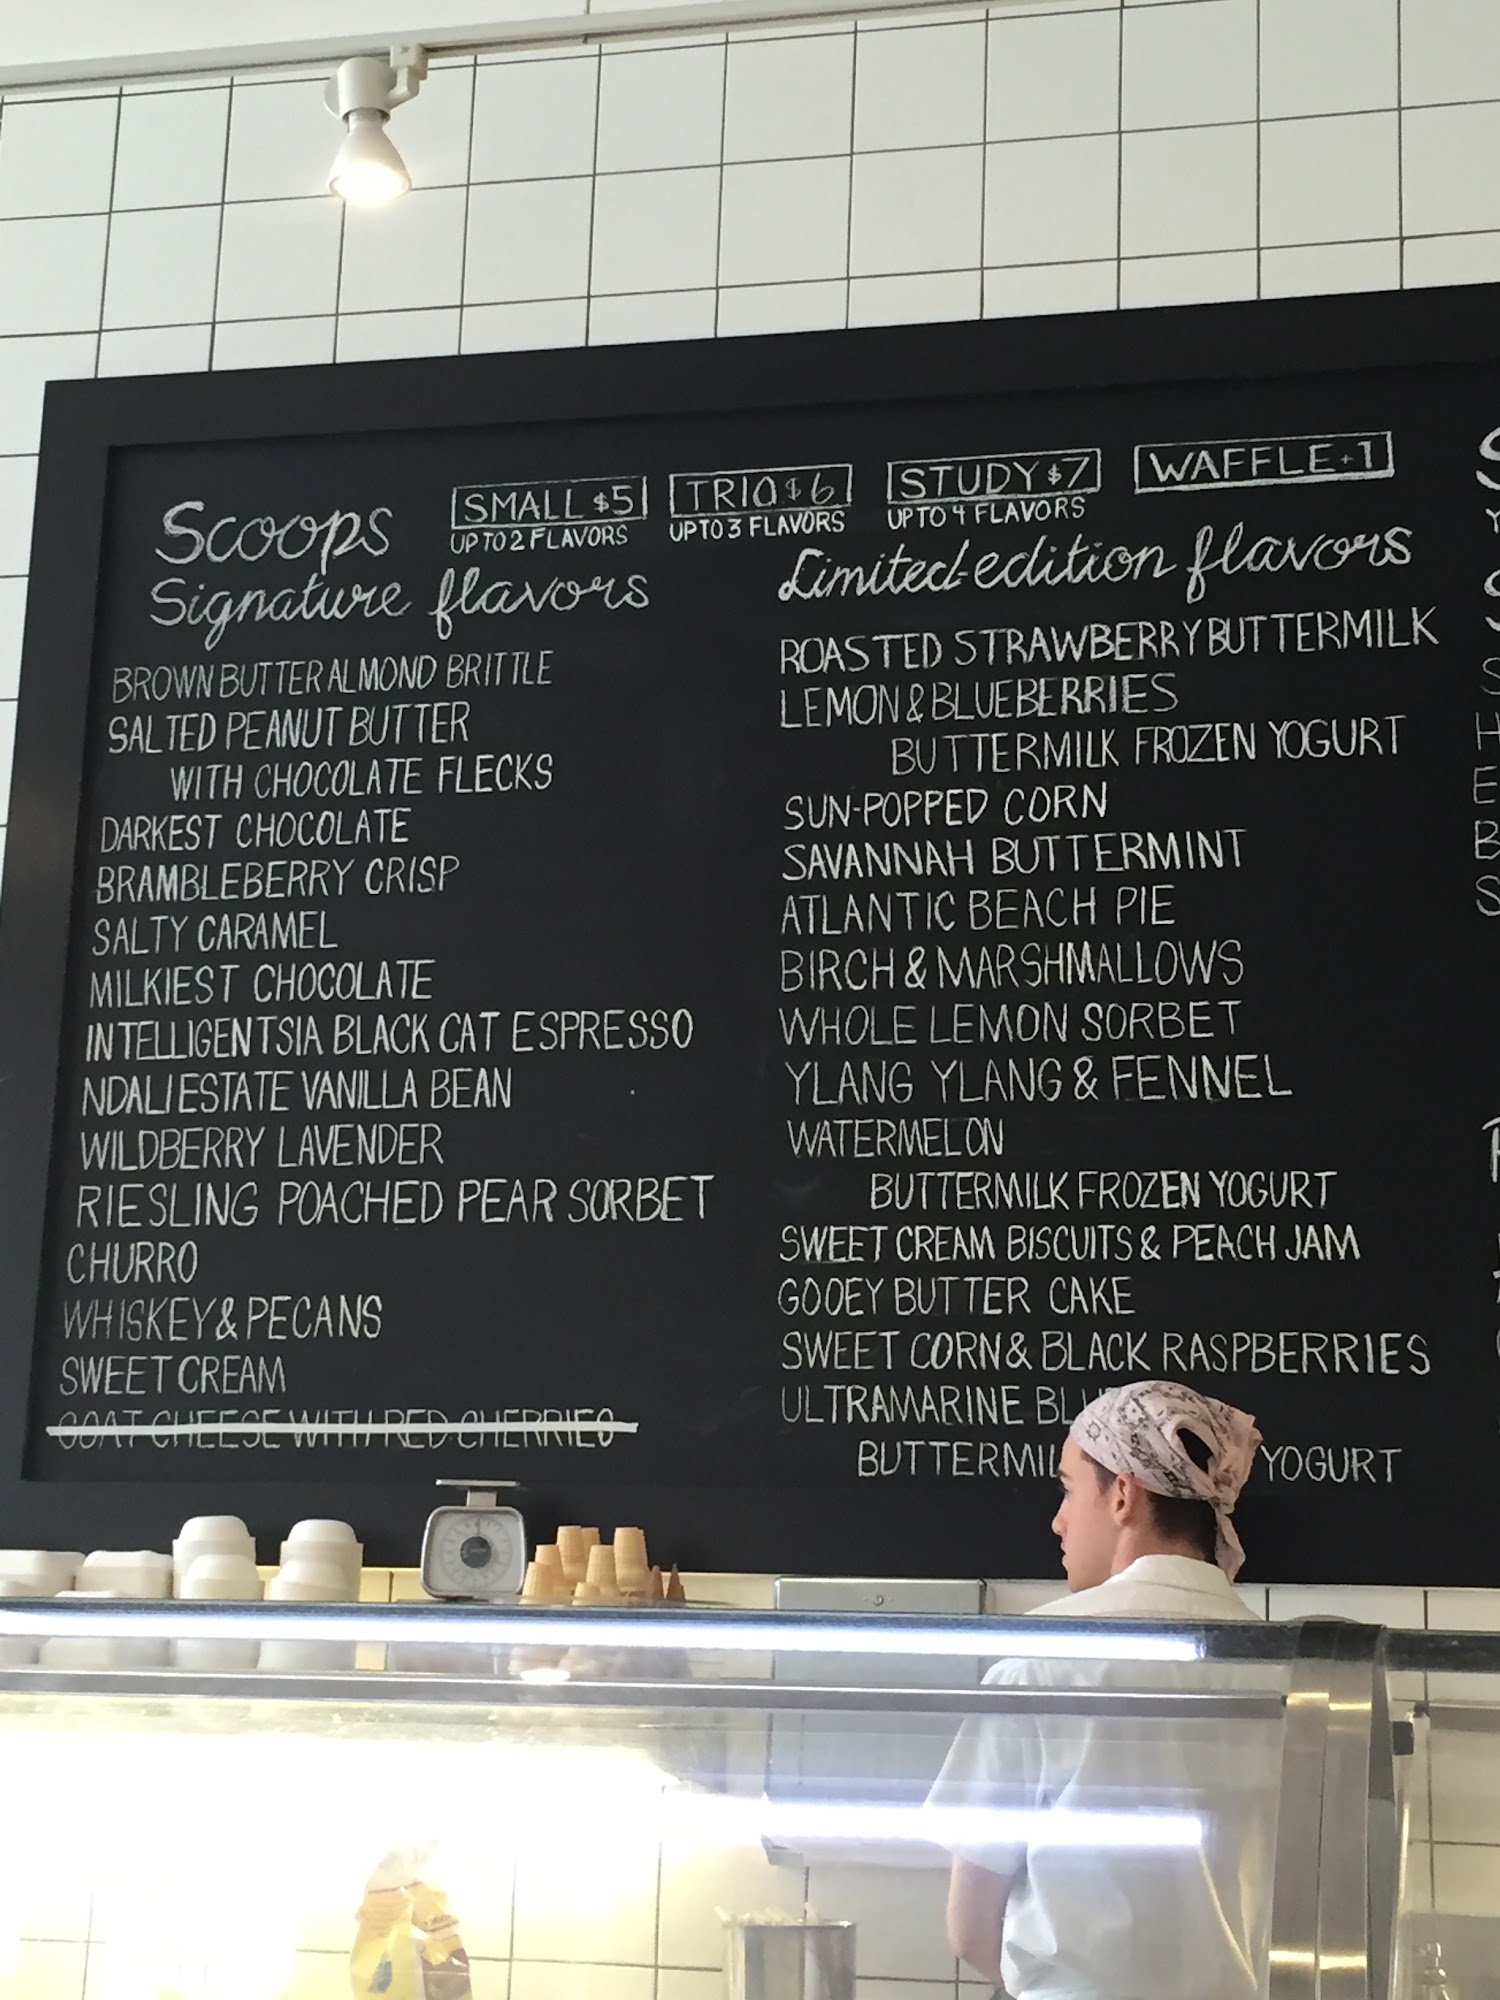 Scoops
SMALL $5
UP TO 2 FLAVORS
TRIO $6
UP TO 3 FLAVORS
STUDY $7
UP TO 4 FLAVORS
WAFFLE +1
Signature flavors
BROWN BUTTER ALMOND BRITTLE
SALTED PEANUT BUTTER
WITH CHOCOLATE FLECKS
DARKEST CHOCOLATE
BRAMBLEBERRY CRISP
SALTY CARAMEL
MILKIEST CHOCOLATE
INTELLIGENTSIA BLACK CAT ESPRESSO
NDALI ESTATE VANILLA BEAN
WILDBERRY LAVENDER
RIESLING POACHED PEAR SORBET
CHURRO
WHISKEY & PECANS
SWEET CREAM
GOAT CHEESE WITH RED CHERRIES
Limited-edition flavors
ROASTED STRAWBERRY BUTTERMILK
LEMON & BLUEBERRIES
BUTTERMILK FROZEN YOGURT
SUN-POPPED CORN
SAVANNAH BUTTERMINT
ATLANTIC BEACH PIE
BIRCH & MARSHMALLOWS
WHOLE LEMON SORBET
YLANG YLANG & FENNEL
WATERMELON
BUTTERMILK FROZEN YOGURT
SWEET CREAM BISCUITS & PEACH JAM
GOOEY BUTTER CAKE
SWEET CORN & BLACK RASPBERRIES
ULTRAMARINE
YOGURT